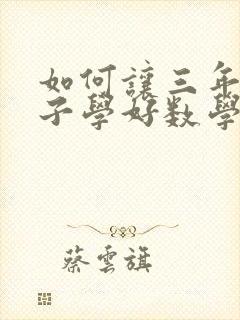 如何讓三年
子學好数學
蔡雲旗